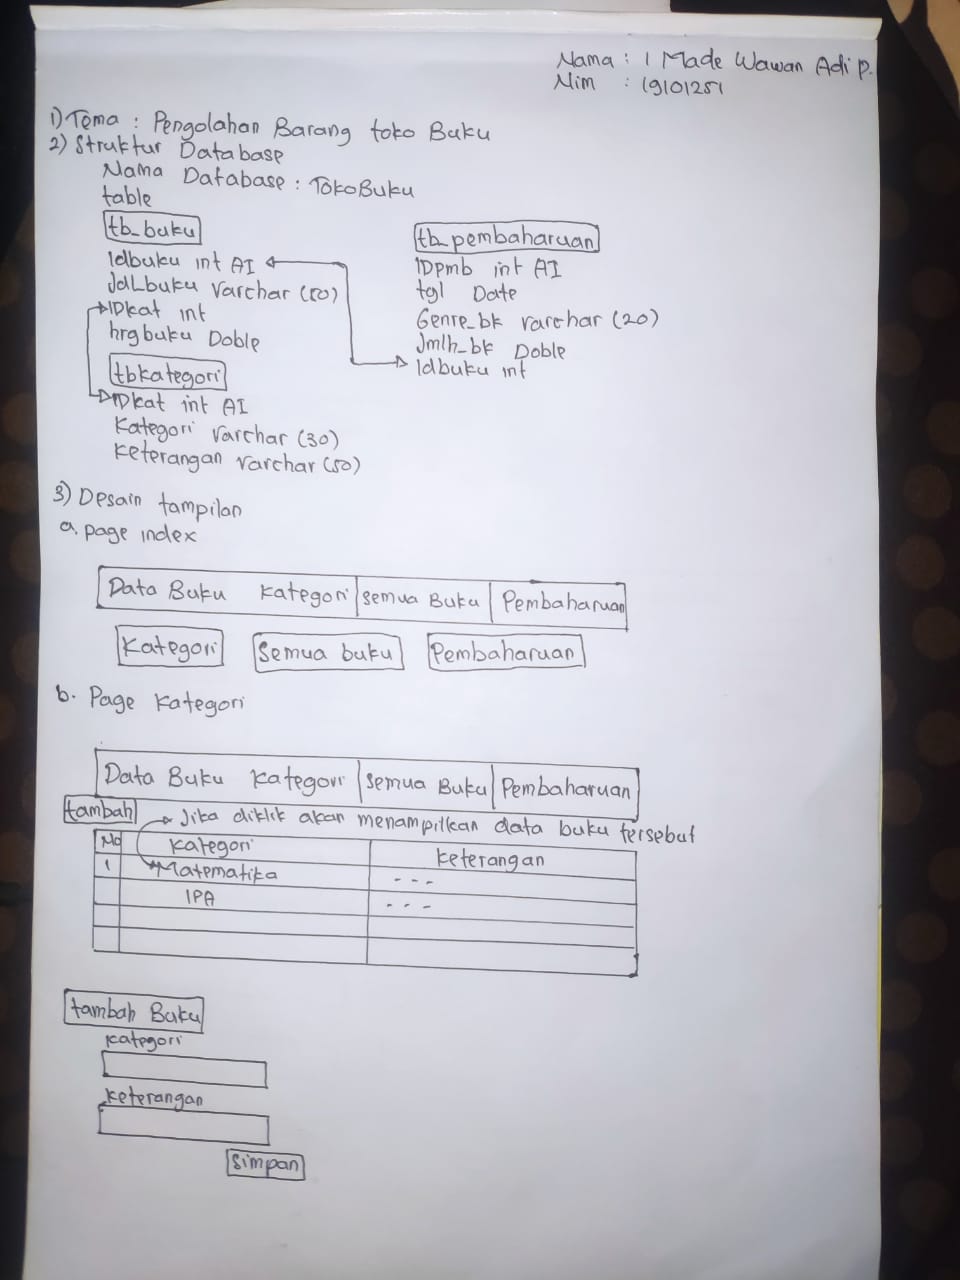 Nama : I Made Wawan Adi P.
Nim : 19101251
1) Tema : Pengolahan Barang toko Buku
2) Struktur Database
Nama Database : TokoBuku
table
tb_buku
Idbuku int AI
JdLbuku Varchar (50)
IDkat int
hrgbuku Doble
tbkategori
IDkat int AI
Kategori Varchar (30)
Keterangan Varchar (50)
tb_pembaharuan
IDpmb int AI
tgl Date
Genre_bk varchar (20)
Jmlh_bk Doble
Idbuku int
3) Desain tampilan
a. page index
Data Buku Kategori Semua Buku Pembaharuan
Kategori Semua buku Pembaharuan
b. Page Kategori
Data Buku Kategori Semua Buku Pembaharuan
tambah Jika diklik akan menampilkan data buku tersebut
No Kategori Keterangan
1 Matematika - - -
IPA - - -
tambah Buku
Kategori
Keterangan
Simpan